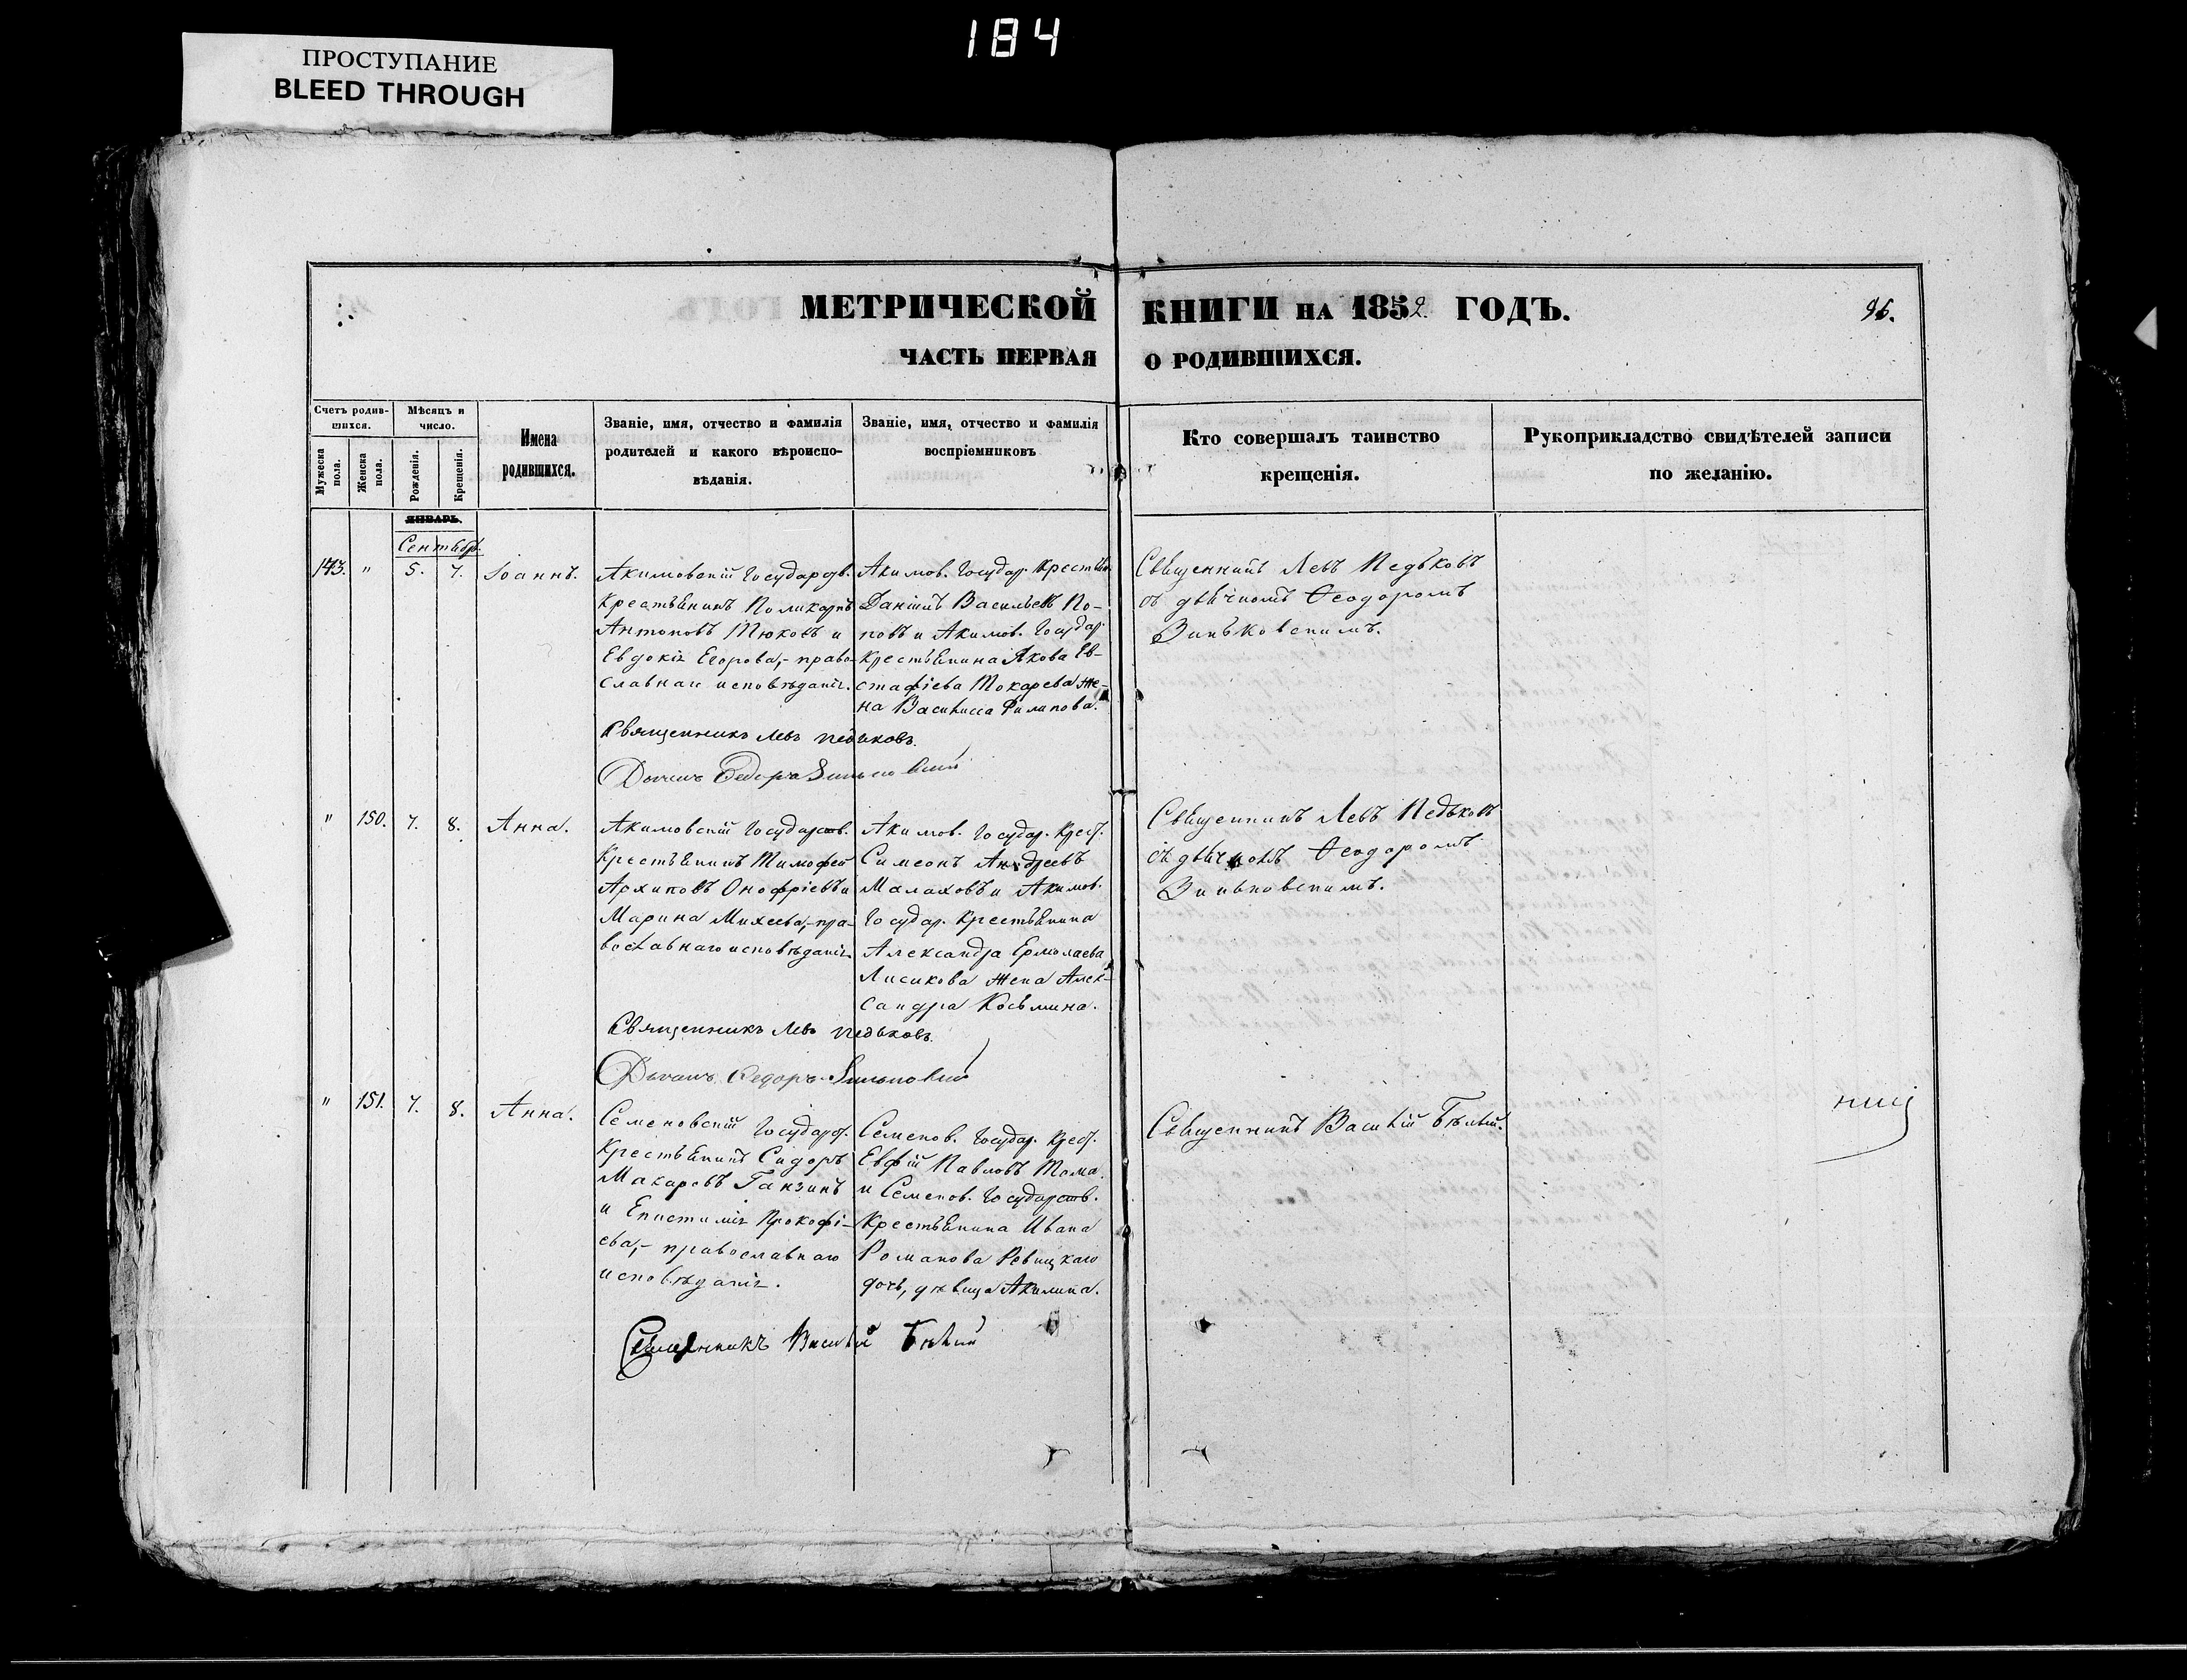 184
ПРОСТУПАНИЕ
BLEED THROUGH
МЕТРИЧЕСКОЙ КНИГИ НА 1852. ГОДЪ.
96.
ЧАСТЬ ПЕРВАЯ О РОДИВШИХСЯ.
Счетъ родив-
шихся.
Мужеска пола.
Женска пола.
Мѣсяцъ и
число.
Рожденія.
Крещенія.
Имена
родившихся.
Званіе, имя, отчество и фамилія
родителей и какого вѣроиспо-
вѣданія.
Званіе, имя, отчество и фамилія
воспріемниковъ
Кто совершалъ таинство
крещенія.
Рукоприкладство свидѣтелей записи
по желанію.
ЯНВАРЬ.
Сентябрь
143. " 5. 7. Іоаннъ.
Акимовскій Государств.
Крестьянинъ Поликарпъ
Антоновъ Тюковъ и
Евдокія Егорова,- право-
славнаго исповѣданія.
Акимов. Государ. Крестьян.
Даніилъ Васильевъ По-
повъ и Акимов. Государ.
Крестьянина Якова Ев-
стафіева Токарева же-
на Василисса Филипова.
Священникъ Левъ Педьковъ
съ дьячкомъ Ѳеодоромъ
Зиньковскимъ.
Священникъ Левъ Педьковъ.
Дьячекъ Ѳедоръ Зиньковскій
" 150. 7. 8. Анна.
Акимовскій Государств.
Крестьянинъ Тимофей
Архиповъ Онофріевъ и
Марина Михеева,-пра-
вославнаго исповѣданія.
Акимов. Государ. Крест.
Симеонъ Андреевъ
Малаховъ и Акимов.
Государ. Крестьянина
Александра Ермолаева
Лисикова жена Алек-
сандра Косьмина.
Священникъ Левъ Педьковъ
съ дьячкомъ Ѳеодоромъ
Зиньковскимъ.
Священникъ Левъ Педьковъ.
Дьячекъ Ѳедоръ Зиньковскій
" 151. 7. 8. Анна.
Семеновскій Государст.
Крестьянинъ Сидоръ
Макаровъ Ганзинъ
и Епистимія Прокофі-
ева,- православнаго
исповѣданія.
Семенов. Государ. Крест.
Евфій Павловъ Тома
и Семенов. Государств.
Крестьянина Ивана
Романова Ревицкаго
дочь, дѣвица Акилина.
Священникъ Василій Бѣлый.
Священникъ Василій Бѣлый